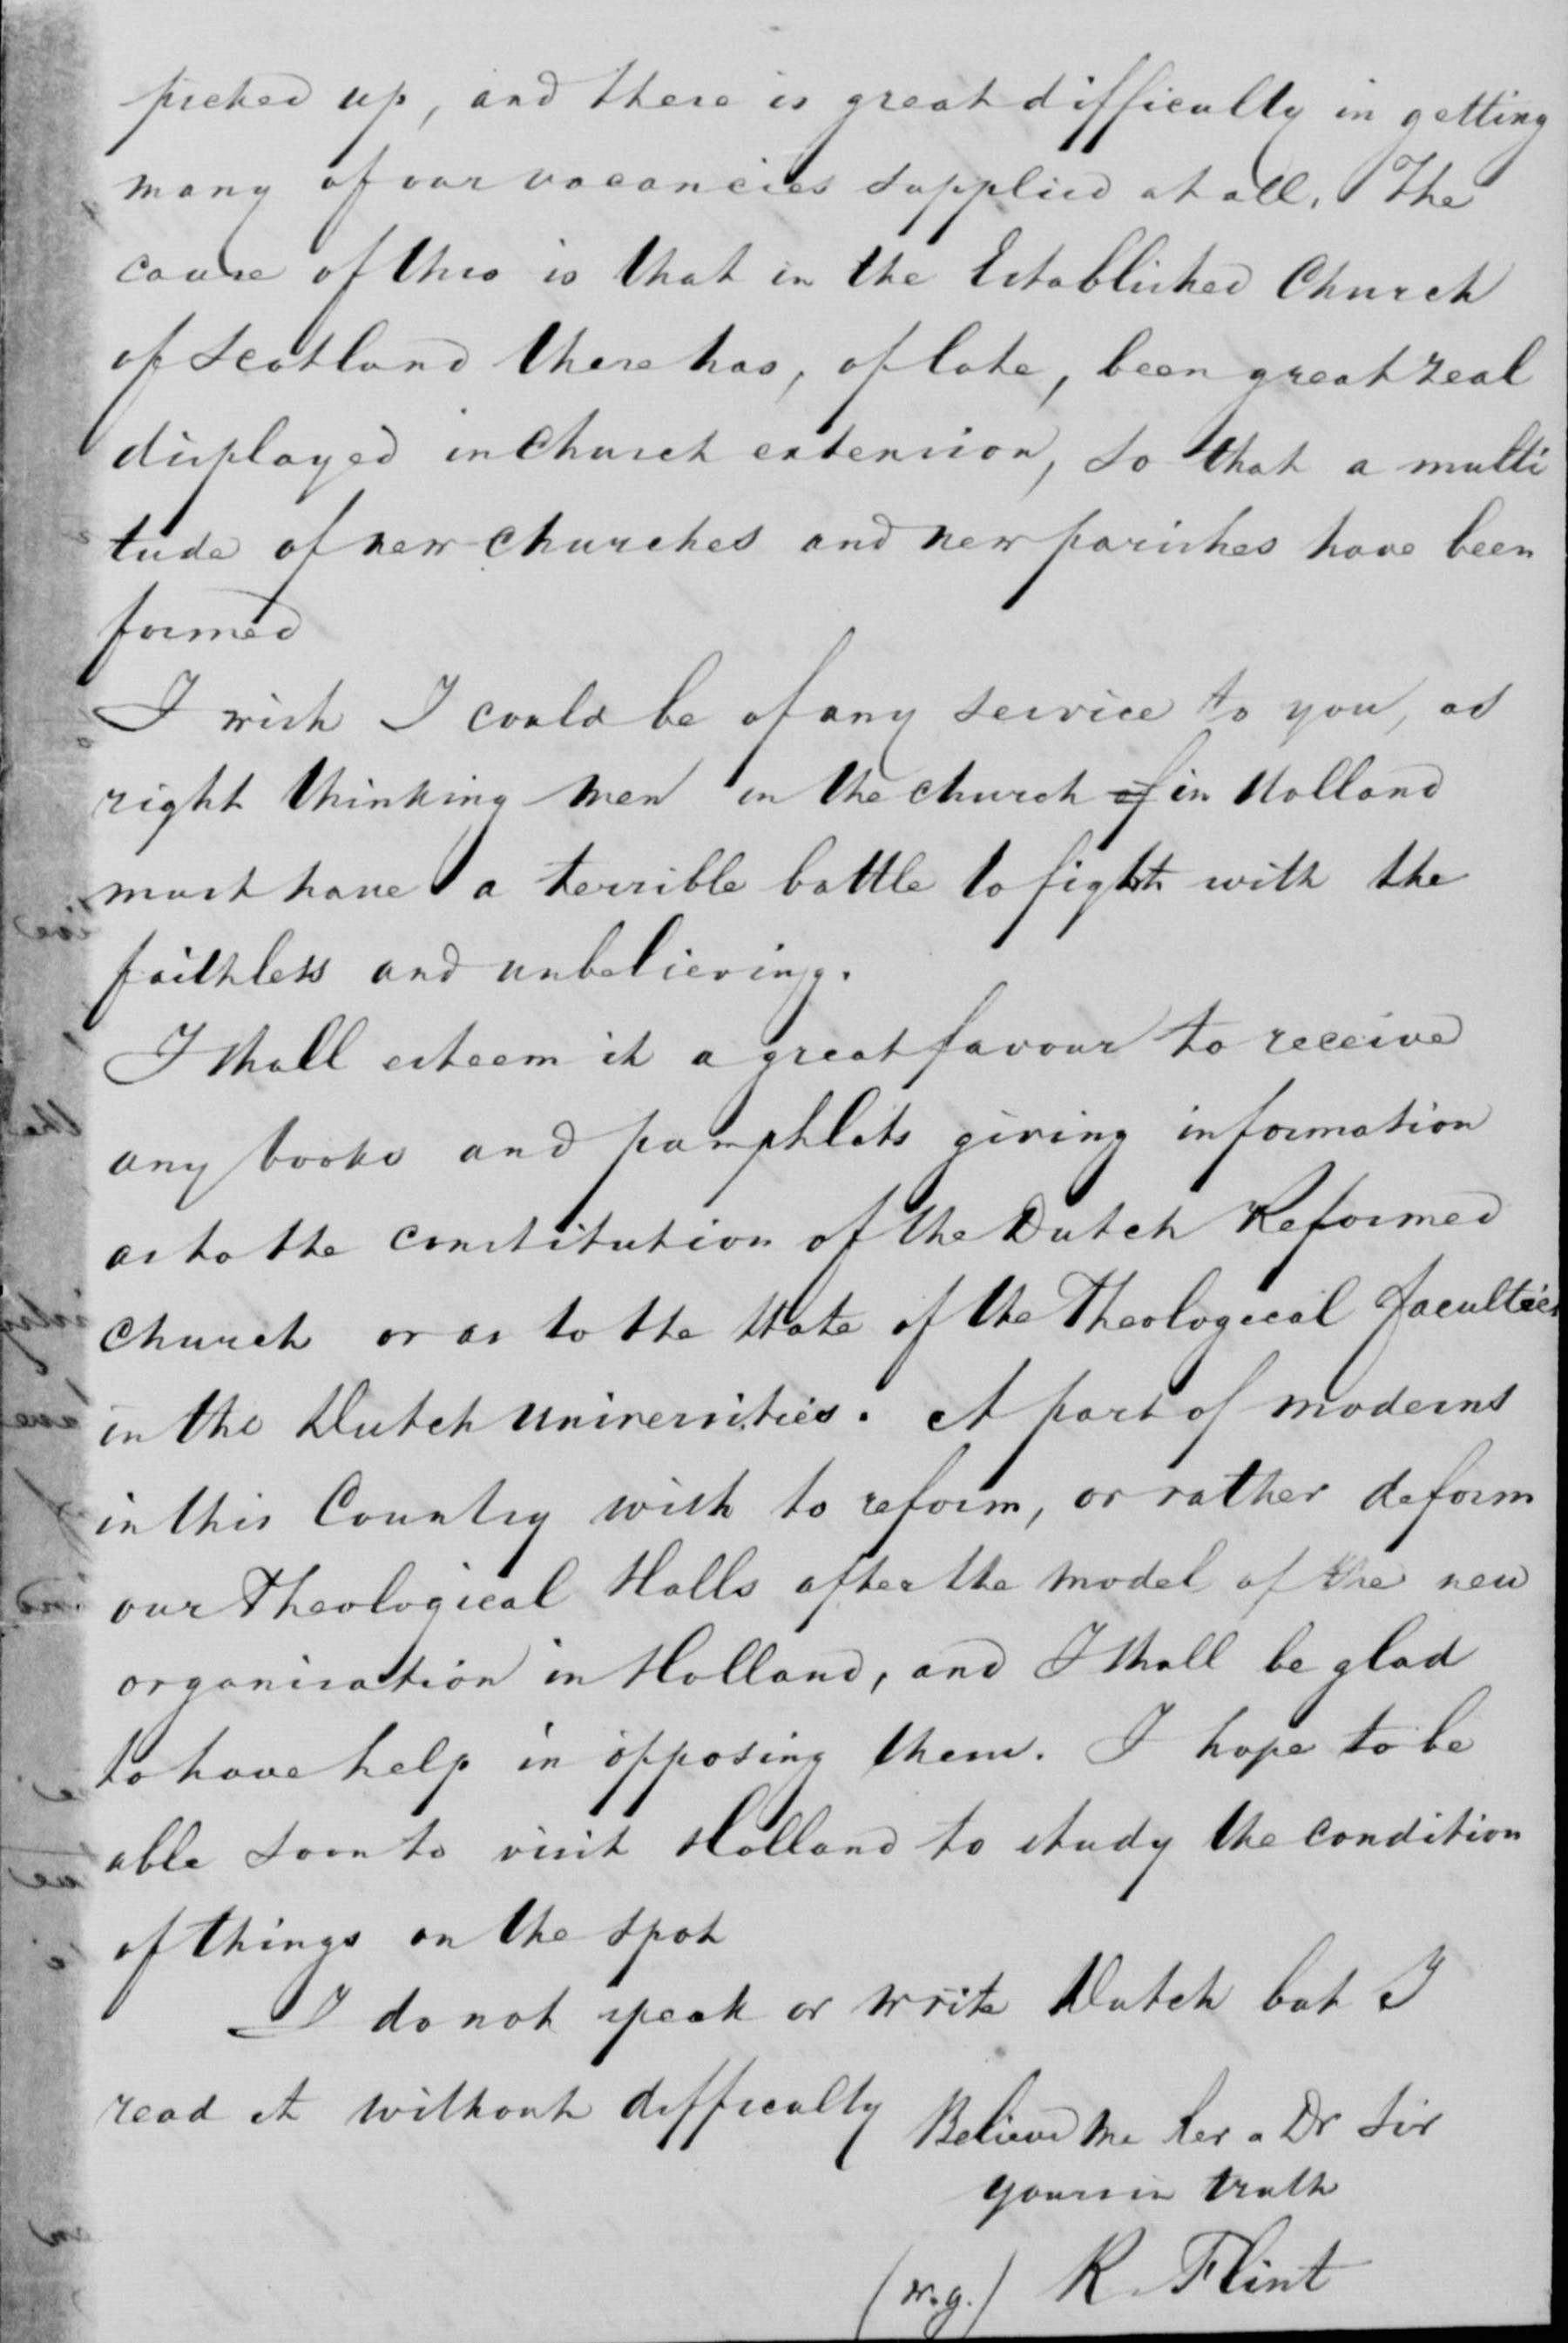 picked up, and there is great difficulty in getting
many of our vacancies supplied at all. The
cause of this is that in the Established Church
of Scotland there has, of late, been great zeal
displayed in Church extension, so that a multi
tude of new churches and new parishes have been
formed
I wish I could be of any service to you, as
right thinking men in the church of in Holland
must have a terrible battle to fight with the
faithless and unbelieving.
I shall esteem it a great favour to receive
any books and pamphlets giving information
as to the constitution of the Dutch Reformed
church or as to the state of the Theological Faculties
in the Dutch universities. A part of moderns
in this Country wish to reform, or rather deform
our Theological Halls after the model of the new
organisation in Holland, and I shall be glad
to have help in opposing them. I hope to be
able soon to visit Holland to study the condition
of things on the spot
I do not speak or write Dutch but I
read it without difficulty
Believe me Rev a Dr Sir
yours in truth
(w.g.) R. Flint